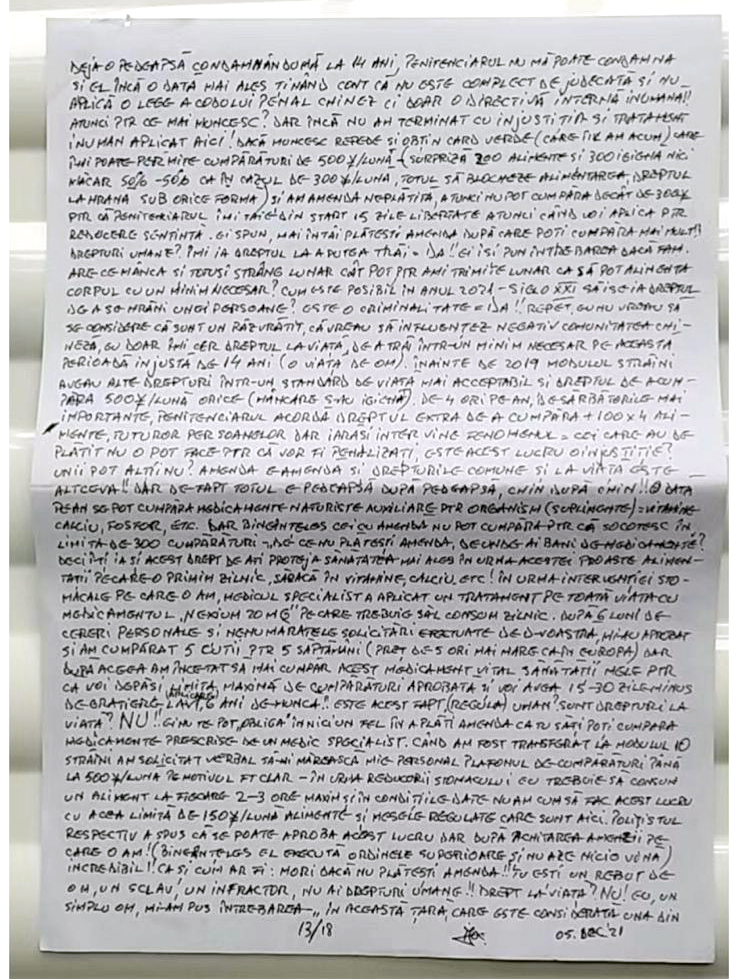 DEJA O PEDEAPSĂ CONDAMNÂNDUMĂ LA 14 ANI, PENITENCIARUL NU MĂ POATE CONDAMNA
ȘI EL ÎNCĂ O DATĂ MAI ALES TINÂND CONT CĂ NU ESTE COMPLECT DE JUDECATĂ ȘI NU
APLICĂ O LEGE A CODULUI PENAL CHINEZ CI DOAR O DIRECTIVĂ INTERNĂ INUMANĂ!!
ATUNCI PTR CE MAI MUNCESC? DAR ÎNCĂ NU AM TERMINAT CU INJUSTIȚIA ȘI TRATAMENT
INUMAN APLICAT AICI! DACĂ MUNCESC REPEDE ȘI OBTIN CARD VERDE (CARE ÎL AM ACUM) CARE
ÎMI POATE PERMITE CUMPĂRĂTURI DE 500¥/LUNĂ (SURPRIZĂ 200 ALIMENTE ȘI 300 IGIENA NICI
MĂCAR 50%-50% CA ÎN CAZUL DE 300¥/LUNA, TOTUL SĂ BLOCHEZE ALIMENTAREA, DREPTUL
LA HRANA SUB ORICE FORMA) ȘI AM AMENDA NEPLĂTITĂ, ATUNCI NU POT CUMPĂRA DECÂT DE 300¥
PTR CĂ PENITENCIARUL ÎMI TAIE DIN START 15 ZILE LIBERTATE ATUNCI CÂND VOI APLICA PTR
REDUCERE SENTINȚA. EI SPUN, MAI ÎNTÂI PLĂTEȘTI AMENDA DUPĂ CARE POȚI CUMPĂRA MAI MULT!!
DREPTURI UMANE? ÎMI IA DREPTUL LA A PUTEA TRĂI = DA!! EI ISI PUN ÎNTREBAREA DACĂ FAM.
ARE CE MÂNCA ȘI TOTUȘI STRÂNG LUNAR CÂT POT PTR AMI TRIMITE LUNAR CA SĂ POT ALIMENTA
CORPUL CU UN MINIM NECESAR? CUM ESTE POSIBIL ÎN ANUL 2021 - SIGLO XXI SĂ ISE IA DREPTUL
DE A SE HRĂNI UNEI PERSOANE? ESTE O CRIMINALITATE = DA!! REPET, EU NU VREAU SĂ
SE CONSIDERE CĂ SUNT UN RĂZVRĂTIT, CĂ VREAU SĂ INFLUENTEZ NEGATIV COMUNITATEA CHI-
NEZĂ, EU DOAR ÎMI CER DREPTUL LA VIATĂ, DE A TRĂI ÎNTR-UN MINIM NECESAR PE ACEASTĂ
PERIOADĂ INJUSTĂ DE 14 ANI (O VIATĂ DE OM). ÎNAINTE DE 2019 MODULUL STRĂINI
AVEAU ALTE DREPTURI ÎNTR-UN STANDARD DE VIATĂ MAI ACCEPTABIL ȘI DREPTUL DE A CUM-
PĂRA 500¥/LUNĂ ORICE (MÂNCARE SAU IGIENĂ). DE 4 ORI PE AN, DE SĂRBĂTORILE MAI
IMPORTANTE, PENITENCIARUL ACORDĂ DREPTUL EXTRA DE A CUMPĂRA +100x4 ALI-
MENTE, TUTUROR PERSOANELOR DAR IARĂSI INTERVINE FENOMENUL = CEI CARE AU DE
PLĂTIT NU O POT FACE PTR CĂ VOR FI PENALIZAȚI, ESTE ACEST LUCRU O INJUSTIȚIE?
UNII POT ALȚII NU? AMENDA E AMENDA ȘI DREPTURILE COMUNE ȘI LA VIATĂ ESTE
ALTCEVA!! DAR DE FAPT TOTUL E PEDEAPSĂ DUPĂ PEDEAPSĂ, CHIN DUPĂ CHIN!! O DATA
PE AN SE POT CUMPĂRA MEDICAMENTE NATURISTE AUXILIARE PTR ORGANISM (SUPLIMENTE) = VITAMINE
CALCIU, FOSFOR, ETC. DAR BINEÎNTELES CEI CU AMENDA NU POT CUMPĂRA PTR CĂ SOCOTESC ÎN
LIMITA DE 300 CUMPĂRĂTURI - DE CE NU PLĂTEȘTI AMENDA, DE UNDE AI BANI DE MEDICAMENTE?
DECI ÎȚI IA ȘI ACEST DREPT DE AȚI PROTEJA SĂNĂTATEA MAI ALES ÎN URMA ACESTEI PROASTE ALIMEN-
TAȚII PE CARE O PRIMIM ZILNIC, SARACĂ ÎN VITAMINE, CALCIU, ETC! ÎN URMA INTERVENȚIEI STO-
MACALE PE CARE O AM, MEDICUL SPECIALIST A APLICAT UN TRATAMENT PE TOATĂ VIATA CU
MEDICAMENTUL „NEXIUM 20 MG" PE CARE TREBUIE SĂL CONSUM ZILNIC. DUPĂ 6 LUNI DE
CERERI PERSONALE ȘI NENUMĂRATELE SOLICITĂRI EFECTUATE DE D-VOASTRĂ, MI-AU APROBAT
ȘI AM CUMPĂRAT 5 CUTII PTR 5 SĂPTĂMÂNI (PREȚ DE 5 ORI MAI MARE CA ÎN EUROPA) DAR
DUPĂ ACEEA AM ÎNCETAT SA MAI CUMPAR ACEST MEDICAMENT VITAL SĂNĂTĂȚII MELE PTR
CĂ VOI DEPĂȘI LIMITA MAXIMĂ DE CUMPĂRĂTURI APROBATA ȘI VOI AVEA 15-30 ZILE MINUS
DE GRATIERE LA 6 ANI DE MUNCA!! ESTE ACEST FAPT (REGULA) UMAN? SUNT DREPTURI LA
VIATĂ? NU!! EI NU TE POT „OBLIGA" ÎN NICI UN FEL ÎN A PLĂTI AMENDA CA TU SĂȚI POȚI CUMPARA
MEDICAMENTE PRESCRISE DE UN MEDIC SPECIALIST. CÂND AM FOST TRANSFERAT LA MODULUL 10
STRĂINI AM SOLICITAT VERBAL SĂ-MI MĂREASCĂ MIE PERSONAL PLAFONUL DE CUMPĂRĂTURI PÂNĂ
LA 500¥/LUNA PE MOTIVUL FT CLAR - ÎN URMA REDUCERII STOMACULUI EU TREBUIE SĂ CONSUM
UN ALIMENT LA FIECARE 2-3 ORE MAXIM ȘI ÎN CONDIȚIILE DATE NU AM CUM SĂ FAC ACEST LUCRU
CU ACEA LIMITĂ DE 150¥/LUNĂ ALIMENTE ȘI MESELE REGULATE CARE SUNT AICI. POLIȚISTUL
RESPECTIV A SPUS CĂ SE POATE APROBA ACEST LUCRU DAR DUPĂ ACHITAREA AMENZII PE
CARE O AM! (BINEÎNTELES EL EXECUTĂ ORDINELE SUPERIOARE ȘI NU ARE NICIO VINA)
INCREDIBIL!! CA ȘI CUM AR FI: MORI DACĂ NU PLĂTEȘTI AMENDA!! TU EȘTI UN REBUT DE
OM, UN SCLAV, UN INFRACTOR, NU AI DREPTURI UMANE!! DREPT LA VIATĂ? NU! EU, UN
SIMPLU OM, MI-AM PUS ÎNTREBAREA - „ÎN ACEASTĂ ȚARĂ, CARE ESTE CONSIDERATA UNA DIN
13/18 05. DEC '21